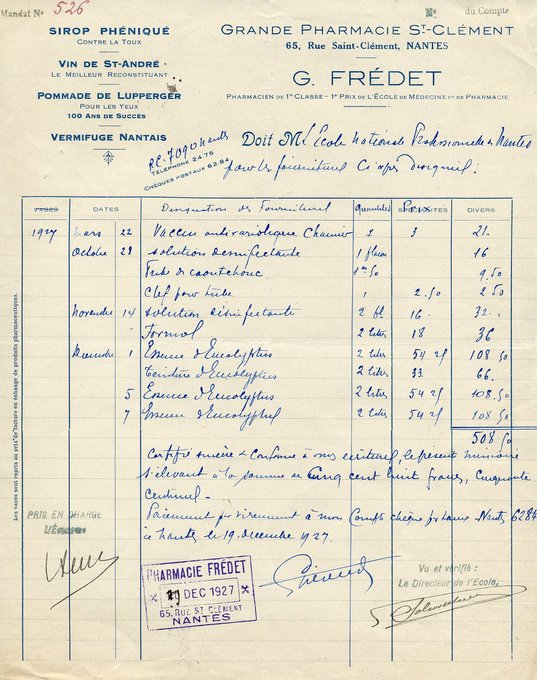 Mandat No 526
No du Compte
SIROP PHÉNIQUÉ
CONTRE LA TOUX
VIN DE ST-ANDRÉ
LE MEILLEUR RECONSTITUANT
POMMADE DE LUPPERGER
POUR LES YEUX
100 ANS DE SUCCÈS
VERMIFUGE NANTAIS
GRANDE PHARMACIE ST-CLÉMENT
65, RUE SAINT-CLÉMENT, NANTES
G. FRÉDET
PHARMACIEN DE 1re CLASSE - 1er PRIX DE L'ÉCOLE DE MÉDECINE ET DE PHARMACIE
R.C. 7090 Nantes
TÉLÉPHONE 24.76
CHÈQUES POSTAUX 62.84
Doit M L'École Nationale Professionnelle de Nantes
pour les fournitures Ci après
VASES DATES Designation des Fournitures quantités Prix SPÉCIALITÉS DIVERS
1927 mars 22 Vaccin antivariolique 7 3 21.
Octobre 29 solution desinfectante 1 flacon 16
Tube de caoutchouc 1m50 9.50
Clef pour tube 1 2.50 2.50
Novembre 14 solution désinfectante 2 fl 16. 32.
Formol 2 litres 18 36
Decembre 1 Essence d'Eucalyptus 2 litres 54 25 108 50
teinture d'Eucalyptus 2 litres 33. 66.
5 Essence d'Eucalyptus 2 litres 54 25 108.50
7 Essence d'Eucalyptus 2 litres 54 25 108 50
508 50
Certifié sincère & Conforme à mes écritures, le présent mémoire
s'élevant à la somme de Cinq cent huit francs, Cinquante
centimes
Paiement par virement à mon Compte chèque postaux Nantes 6284
à Nantes le 19 décembre 1927.
Les vases sont repris au prix de facture en échange de produits pharmaceutiques.
PRIS EN CHARGE
L'Économe
PHARMACIE FRÉDET
DEC 1927
65, RUE ST CLÉMENT
NANTES
Vu et vérifié :
Le Directeur de l'École,